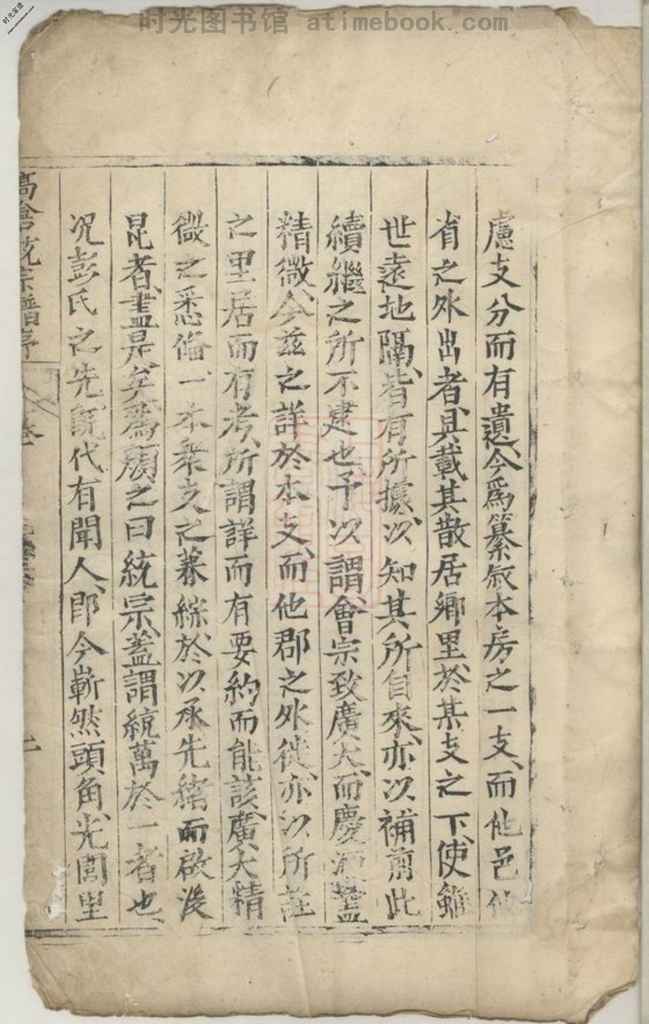 时光图书馆 atimebook.com
时光家谱
慮支分而有遺今爲纂叙本房之一支而他邑他
省之外出者具載其散居鄉里於某支之下使雖
世遠地隔皆有所據以知其所自來亦以補前此
續繼之所不逮也予以謂會宗致廣大而慶源蓋
精微今兹之詳於本支而他郡之外徙亦以所註
之里居而有考所謂詳而有要約而能該廣大精
微之悉俻一本衆支之兼綜於以承先緒而啟後
昆者盡是矣爲顔之曰統宗蓋謂綂萬於一者也
况彭氏之先旣代有聞人即今嶄然頭角光閭里
髙倉統宗譜序 卷一 二